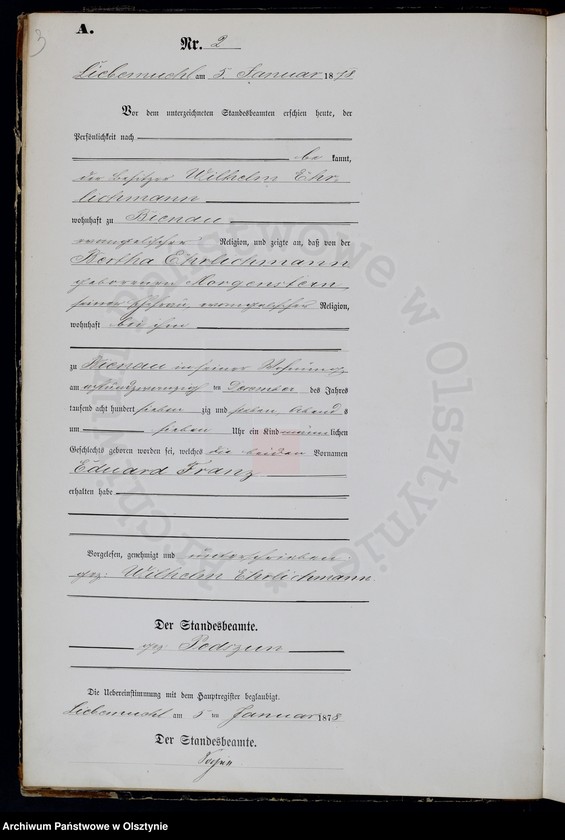 3
A.
Nr. 2
Liebemuehl am 5. Januar 1878
Vor dem unterzeichneten Standesbeamten erschien heute, der
Persönlichkeit nach
be kannt,
der Besitzer Wilhelm Ehr-
lichmann
wohnhaft zu Bienau
evangelischer Religion, und zeigte an, daß von der
Bertha Ehrlichmann
geborenen Morgenstern
seiner Ehefrau, evangelischer Religion,
wohnhaft bei ihm
zu Bienau in seiner Wohnung
am achtundzwanzigsten ten December des Jahres
tausend acht hundert sieben zig und sieben Abends
um sieben Uhr ein Kind männlichen
Geschlechts geboren worden sei, welches die beiden Vornamen
Eduard Franz
erhalten habe
Vorgelesen, genehmigt und unterschrieben
gez: Wilhelm Ehrlichmann
Der Standesbeamte.
gez
Die Uebereinstimmung mit dem Hauptregister beglaubigt.
Liebemuehl am 5 ten Januar 1878
Der Standesbeamte.
Archiwum Państwowe w Olsztynie
Archiwum Państwowe w Olsztynie